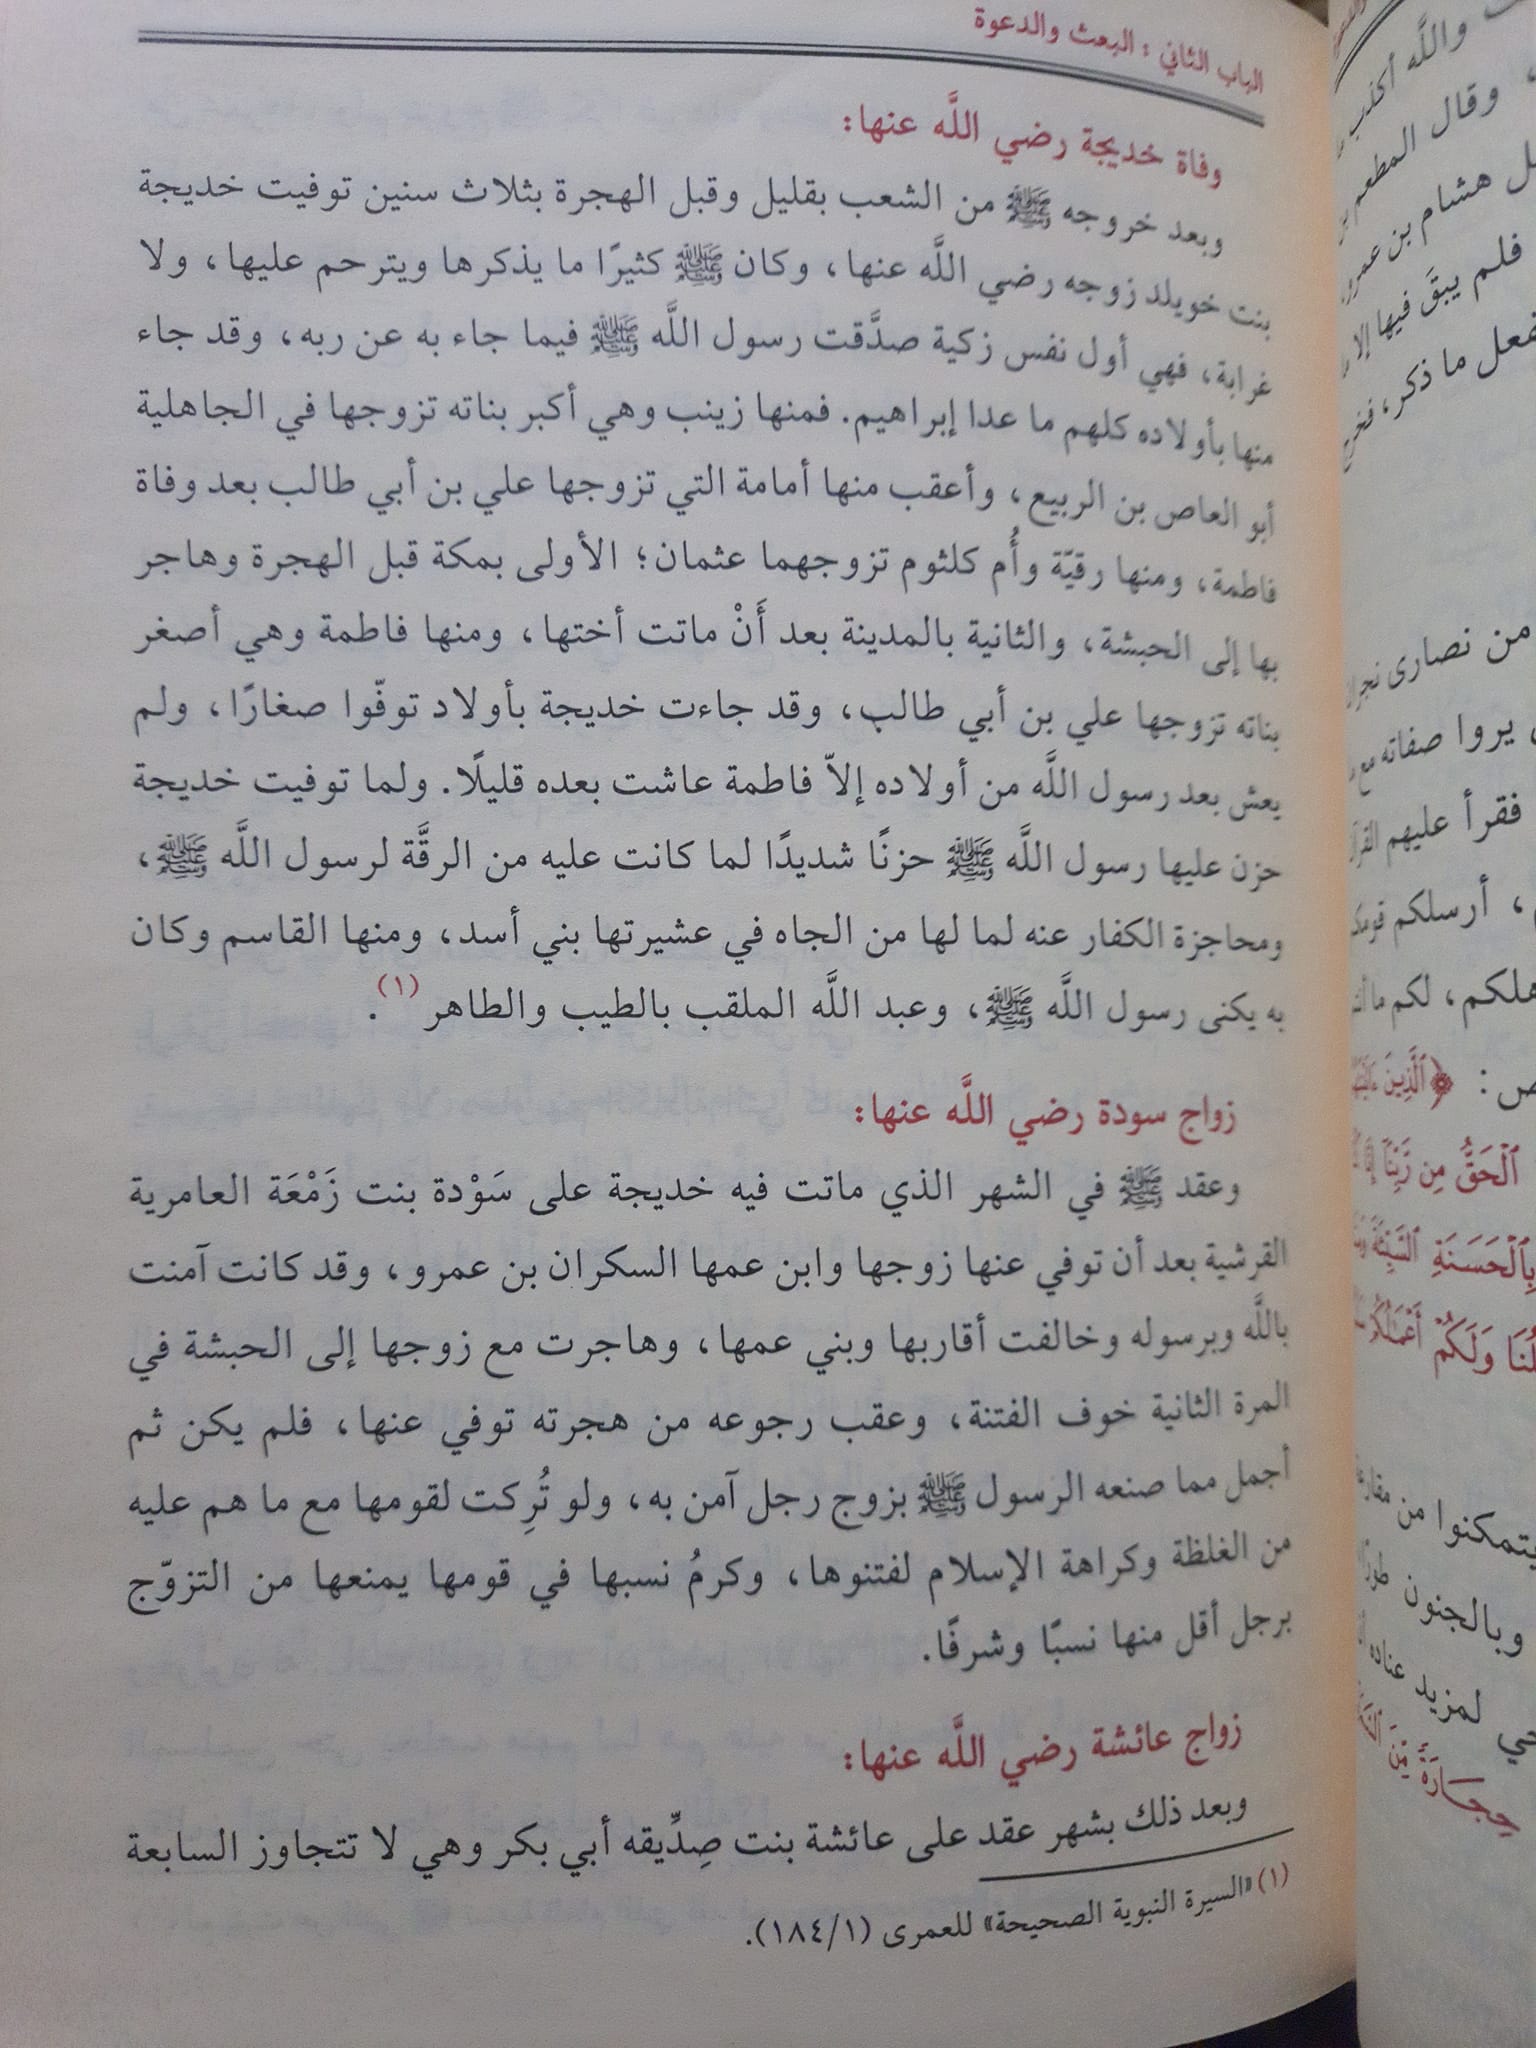 الباب الثاني : البعث والدعوة
وفاة خديجة رضي اللَّه عنها:
وبعد خروجه ﷺ من الشعب بقليل وقبل الهجرة بثلاث سنين توفيت خديجة
بنت خويلد زوجه رضي اللَّه عنها، وكان ﷺ كثيرًا ما يذكرها ويترحم عليها، ولا
غرابة، فهي أول نفس زكية صدَّقت رسول اللَّه ﷺ فيما جاء به عن ربه، وقد جاء
منها بأولاده كلهم ما عدا إبراهيم. فمنها زينب وهي أكبر بناته تزوجها في الجاهلية
أبو العاص بن الربيع، وأعقب منها أمامة التي تزوجها علي بن أبي طالب بعد وفاة
فاطمة، ومنها رقيّة وأُم كلثوم تزوجهما عثمان؛ الأولى بمكة قبل الهجرة وهاجر
بها إلى الحبشة، والثانية بالمدينة بعد أَنْ ماتت أختها، ومنها فاطمة وهي أصغر
بناته تزوجها علي بن أبي طالب، وقد جاءت خديجة بأولاد توفّوا صغارًا، ولم
يعش بعد رسول اللَّه من أولاده إلاّ فاطمة عاشت بعده قليلًا. ولما توفيت خديجة
حزن عليها رسول اللَّه ﷺ حزنًا شديدًا لما كانت عليه من الرقَّة لرسول اللَّه ﷺ،
ومحاجزة الكفار عنه لما لها من الجاه في عشيرتها بني أسد، ومنها القاسم وكان
به يكنى رسول اللَّه ﷺ، وعبد اللَّه الملقب بالطيب والطاهر (١).
زواج سودة رضي اللَّه عنها:
وعقد ﷺ في الشهر الذي ماتت فيه خديجة على سَوْدة بنت زَمْعَة العامرية
القرشية بعد أن توفي عنها زوجها وابن عمها السكران بن عمرو، وقد كانت آمنت
باللَّه وبرسوله وخالفت أقاربها وبني عمها، وهاجرت مع زوجها إلى الحبشة في
المرة الثانية خوف الفتنة، وعقب رجوعه من هجرته توفي عنها، فلم يكن ثم
أجمل مما صنعه الرسول ﷺ بزوج رجل آمن به، ولو تُرِكت لقومها مع ما هم عليه
من الغلظة وكراهة الإسلام لفتنوها، وكرمُ نسبها في قومها يمنعها من التزوّج
برجل أقل منها نسبًا وشرفًا.
زواج عائشة رضي اللَّه عنها:
وبعد ذلك بشهر عقد على عائشة بنت صِدِّيقه أبي بكر وهي لا تتجاوز السابعة
(١) «السيرة النبوية الصحيحة» للعمرى (١/١٨٤).
واللَّه أكذب
وقال المطعم
هشام بن عمرو
فلم يبقَ فيها إلا
ما ذكر، فخرج
من نصارى نجران
يروا صفاته مع
فقرأ عليهم القرآن
، أرسلكم قومكم
، لكم ما
: ﴿ٱلَّذِينَ
ٱلْحَقُّ مِن رَّبِّنَآ
بِٱلْحَسَنَةِ ٱلسَّيِّئَةَ
وَلَكُمْ أَعْمَـٰلُكُمْ
يتمكنوا من
وبالجنون طورًا
لمزيد عناده
حِجَارَةً مِّنَ